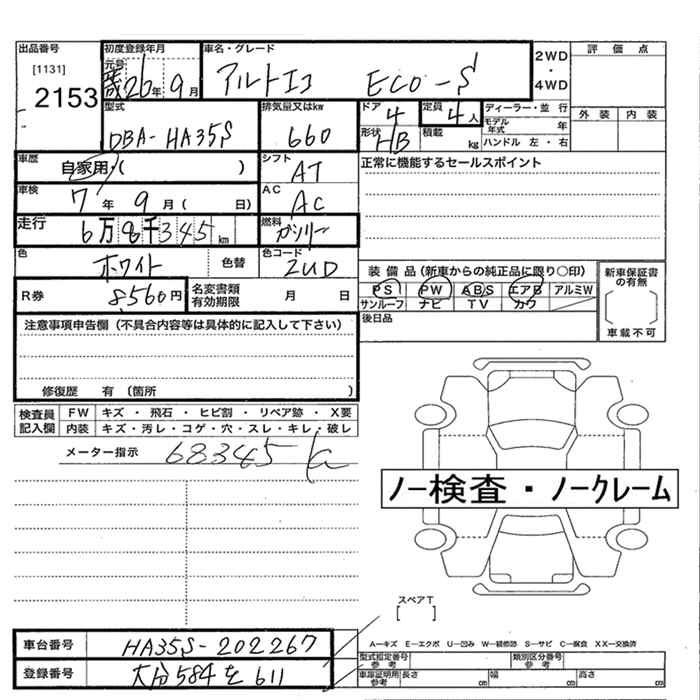 出品番号
[1131]
2153
初度登録年月
元号
歳26年9月
車名・グレード
アルトエコ ECO-S
2WD
・
4WD
評価点
外装 内装
型式
DBA-HA35S
排気量又はkw
660
ドア
4
形状
HB
定員
4人
積載
kg
ディーラー・並行
モデル年式 年
ハンドル 左・右
車歴
自家用・( )
シフト
AT
正常に機能するセールスポイント
車検
7年9月( 日)
AC
AC
走行
6万8千345km
燃料
ガソリー
色
ホワイト
色替
色コード
ZUD
R券
8560円
名変書類有効期限 月 日
装備品(新車からの純正品に限り○印)
PS PW ABS エアB アルミW
サンルーフ ナビ TV カワ
新車保証書の有無
[ ]
車載不可
後日品
注意事項申告欄(不具合内容等は具体的に記入して下さい)
修復歴 有(箇所 )
検査員記入欄
FW キズ・飛石・ヒビ割・リペア跡・X要
内装 キズ・汚レ・コゲ・穴・スレ・キレ・破レ
メーター指示 68345 K
ノー検査・ノークレーム
スペアT
[ ]
A-キズ E-エクボ U-凹み W-補修跡 S-サビ C-腐食 XX-交換済
車台番号 HA35S-202267
登録番号 大分584を611
型式指定番号 参考
類別区分番号 参考
車庫証明用 参考
長さ cm
幅 cm
高さ cm